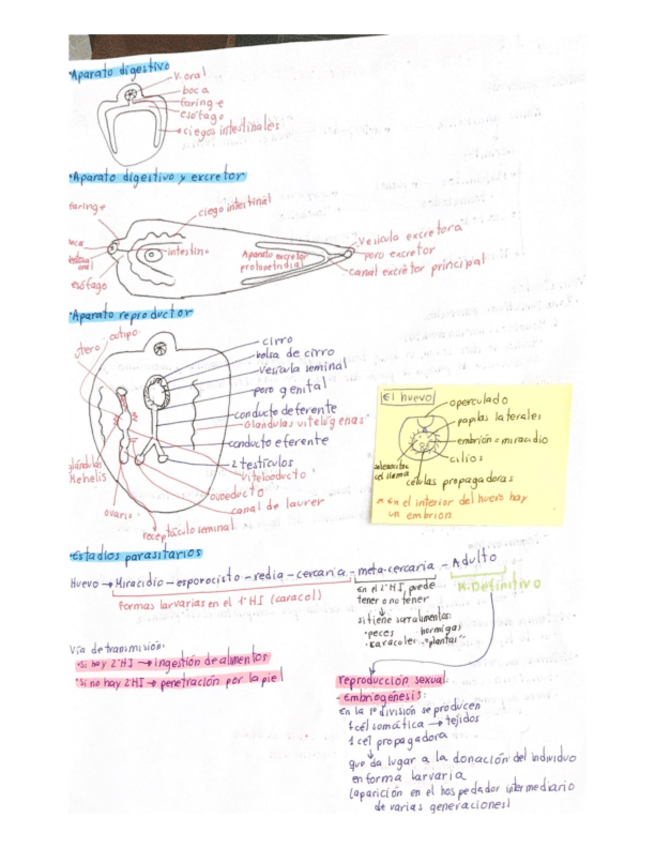 ·Aparato digestivo
V. oral
boca
faringe
esófago
ciegos intestinales
·Aparato digestivo y excretor
faringe
ciego intestinal
intestino
esófago
Aparato excretor
protonefridial
Vesícula excretora
poro excretor
canal excretor principal
·Aparato reproductor
ootipo
útero
cirro
bolsa de cirro
vesícula seminal
poro genital
conducto deferente
Glándulas vitelógenas
conducto eferente
2 testículos
viteloducto
oviducto
canal de laurer
glándulas
Mehelis
ovario
receptáculo seminal
El huevo
operculado
papilas laterales
embrión = miracidio
cilios
células propagadoras
* En el interior del huevo hay
un embrión
·Estadios parasitarios
Huevo → Miracidio – esporocisto – redia – cercaria – meta-cercaria – Adulto
formas larvarias en el 1º HI (caracol)
En el 2º HI, puede
tener o no tener
H. Definitivo
si tiene
·peces hormigas
·caracoles "plantas"
Vía de transmisión:
·Si hay 2º HI → ingestión de alimentos
·Si no hay 2HI → penetración por la piel
reproducción sexual:
- Embriogénesis:
En la 1º división se producen
1 cél somática → tejidos
1 cél propagadora
que da lugar a la donación del individuo
en forma larvaria
(aparición en el hospedador intermediario
de varias generaciones)